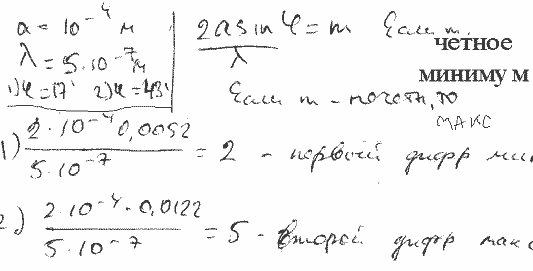 a = 10⁻⁴ м
λ = 5·10⁻⁷ м
1) φ = 17' 2) φ = 43'
2a sin φ / λ = m Если m
четное
миниму м
Если m - нечетн, то
МАКС
1) 2·10⁻⁴ 0,0052 / 5·10⁻⁷ = 2 - первый дифр мин
2.) 2·10⁻⁴·0,0122 / 5·10⁻⁷ = 5 - второй дифр макс